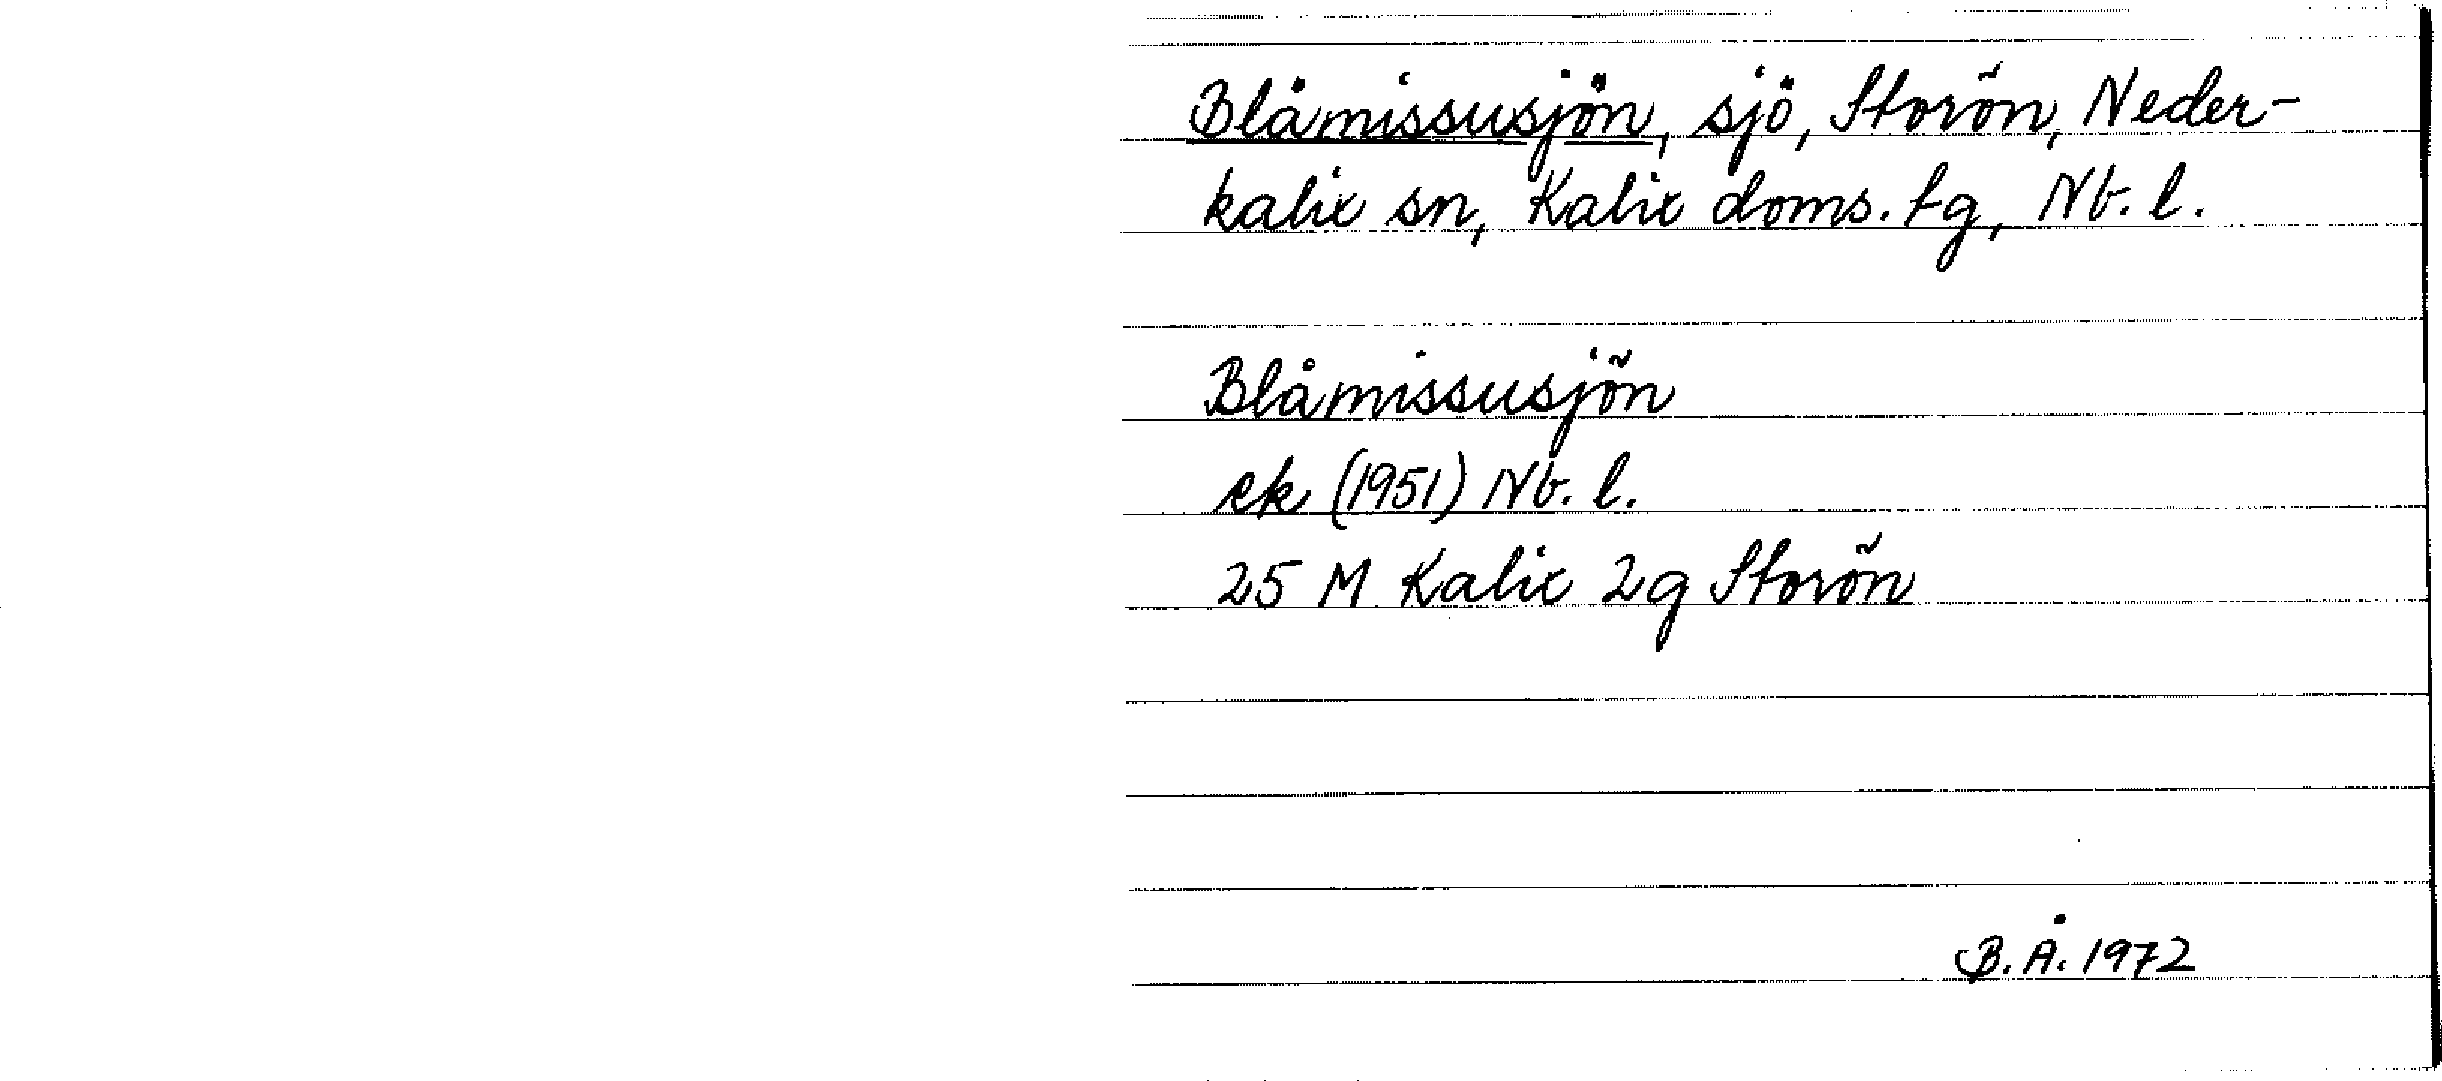 Blåmissusjön, sjö, Storön, Neder-
kalix sn, Kalix doms. tg, Nb. l.
Blåmissusjön
ek (1951) Nb. l.
25 M Kalix 2g Storön
B.Å. 1972